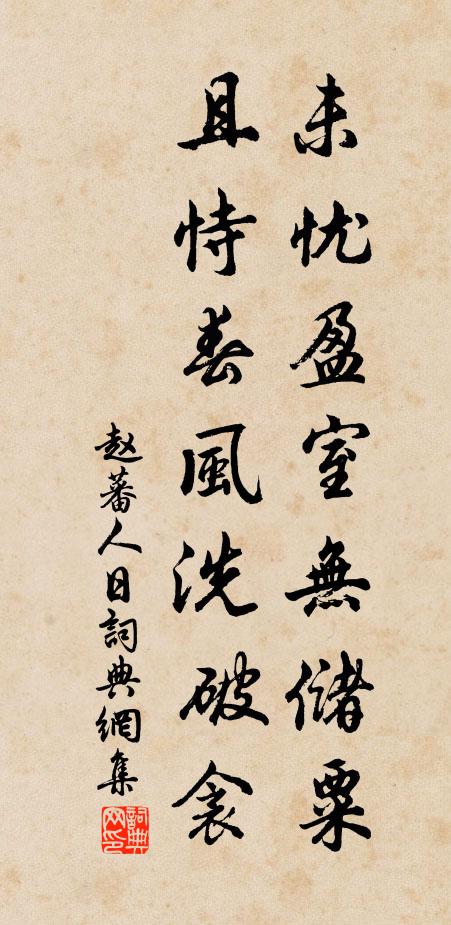 未忧盈室無儲粟
且恃春風洗破衾
赵蕃人日詞典網集
詞典網印